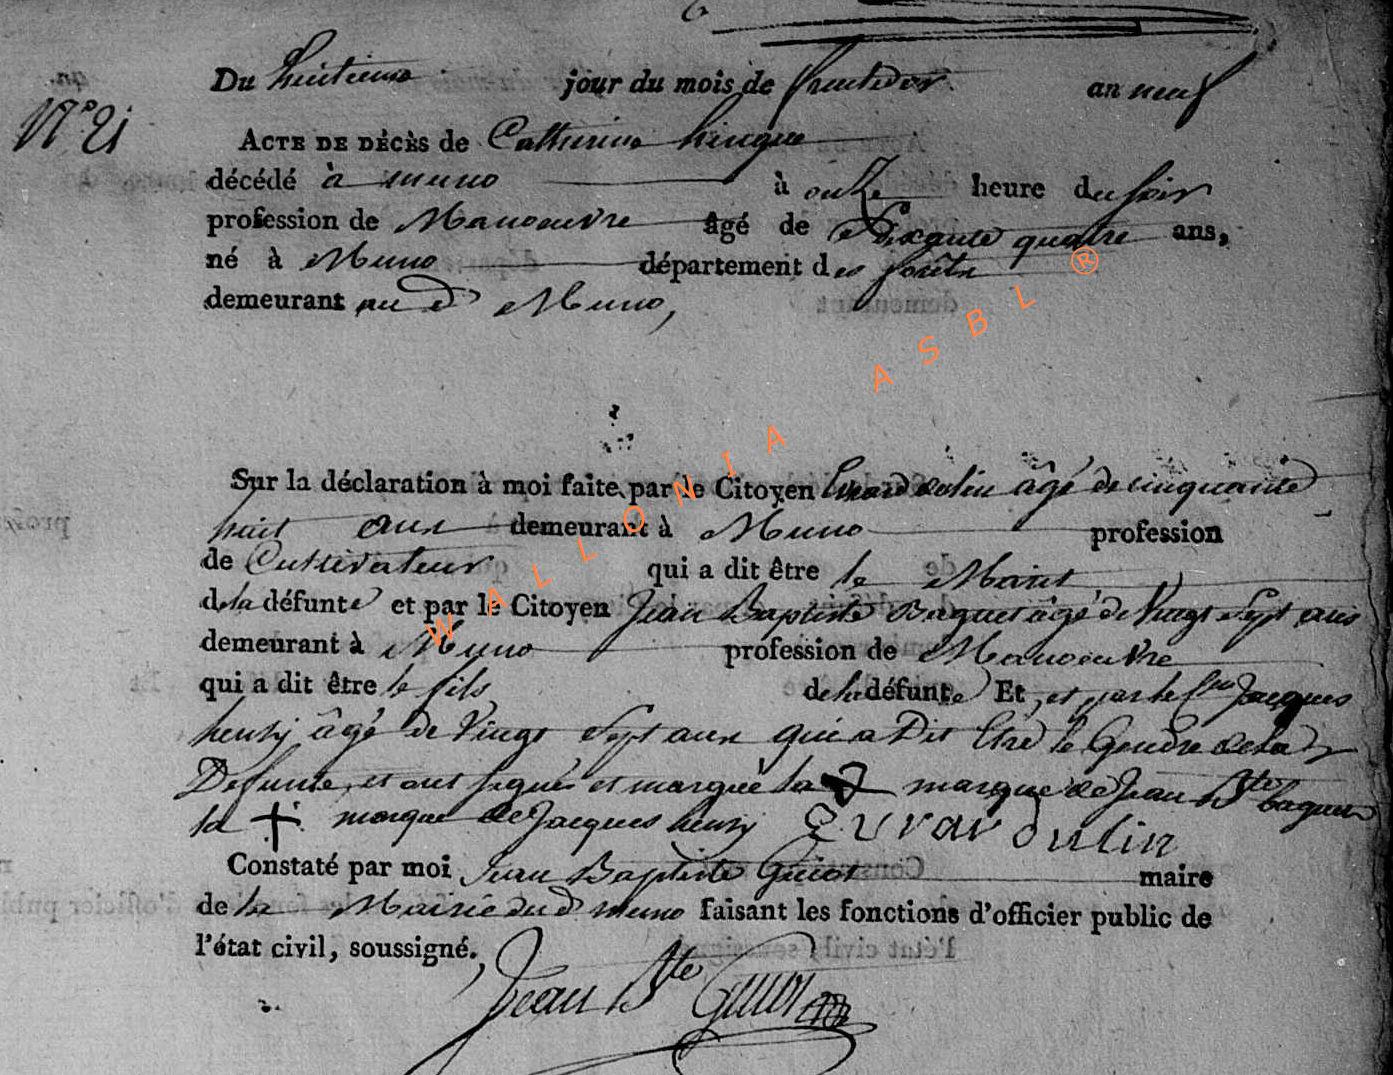 Du huitieme jour du mois de fructidor an neuf
N° 21
ACTE DE DÉCÈS de Catherine hinque
décédé à muno à onze heure du soir
profession de Manoeuvre âgé de Soixante quatre ans,
né à Muno département des forêts
demeurant au d Muno,
Sur la déclaration à moi faite par le Citoyen Evrard âgé de cinquante
huit ans demeurant à Muno profession
de Cultivateur qui a dit être le Marit
de la défunte et par le Citoyen Jean Baptiste Baguet âgé de Vingt Sept ans
demeurant à Muno profession de Manoeuvre
qui a dit être le fils de la défunte Et, et par le Jacques
henry âgé de Vingt Sept ans qui a Dit Etre le Gendre de la
Defunte, et ont signés et marqué la marque de Jean Bte baguet
la + marque de Jacques henry Evrar dulin
Constaté par moi Jean Baptiste Guiot maire
de la Mairie du d muno faisant les fonctions d'officier public de
l'état civil, soussigné.
Jean Bte Guiot
WALLONIA ASBL ®